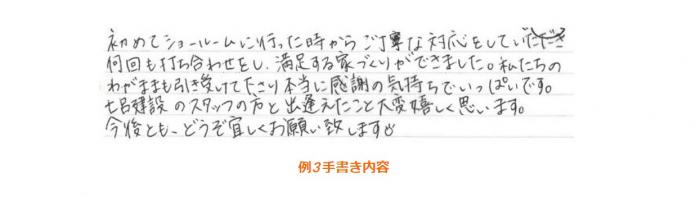 初めてショールームに行った時からご丁寧な対応をしていただき
何回も打ち合わせをし、満足する家づくりができました。私たちの
わがままも引き受けて下さり本当に感謝の気持ちでいっぱいです。
建設のスタッフの方と出逢えたこと大変嬉しく思います。
今後とも、どうぞ宜しくお願い致します
例3手書き内容